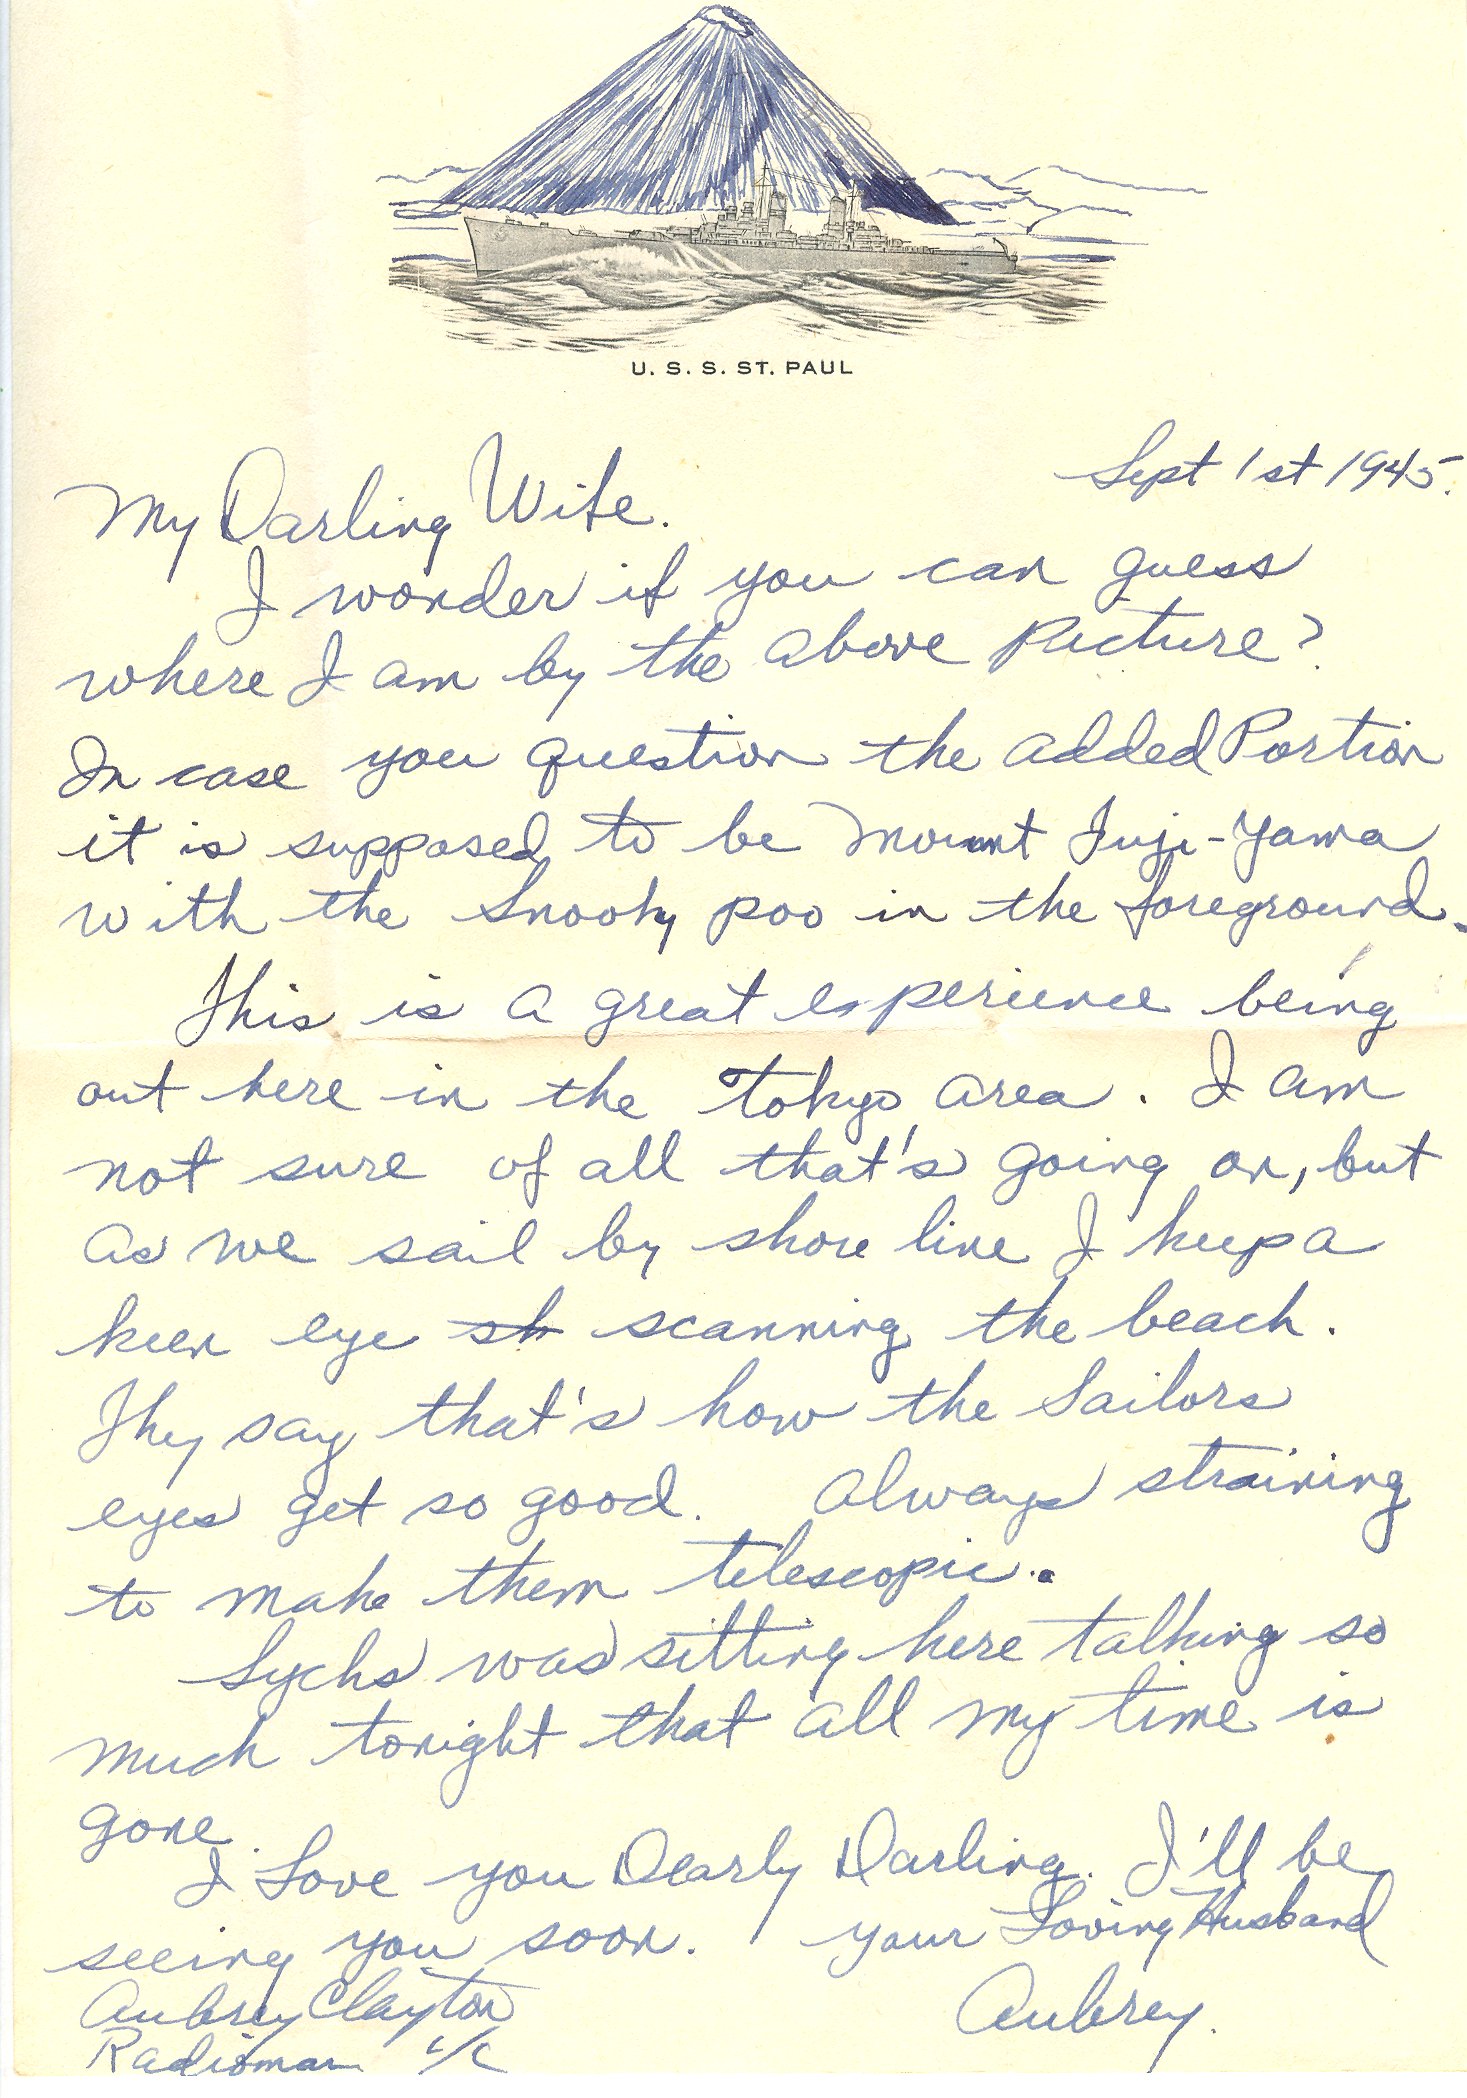 U. S. S. ST. PAUL
Sept 1st 1945.
My Darling Wife.
I wonder if you can guess
where I am by the above picture?
In case you question the added Portion
it is supposed to be Mount Fuji-Yama
with the Snooky poo in the foreground.
This is a great experience being
out here in the Tokyo area. I am
not sure of all that's going on, but
as we sail by shore line I keep a
keen eye sh scanning the beach.
They say that's how the Sailors
eyes get so good. Always straining
to make them telescopic.
Sychs was sitting here talking so
much tonight that all my time is
gone.
I Love you Dearly Darling. I'll be
seeing you soon. Your Loving Husband
Aubrey.
Aubrey Clayton
Radioman